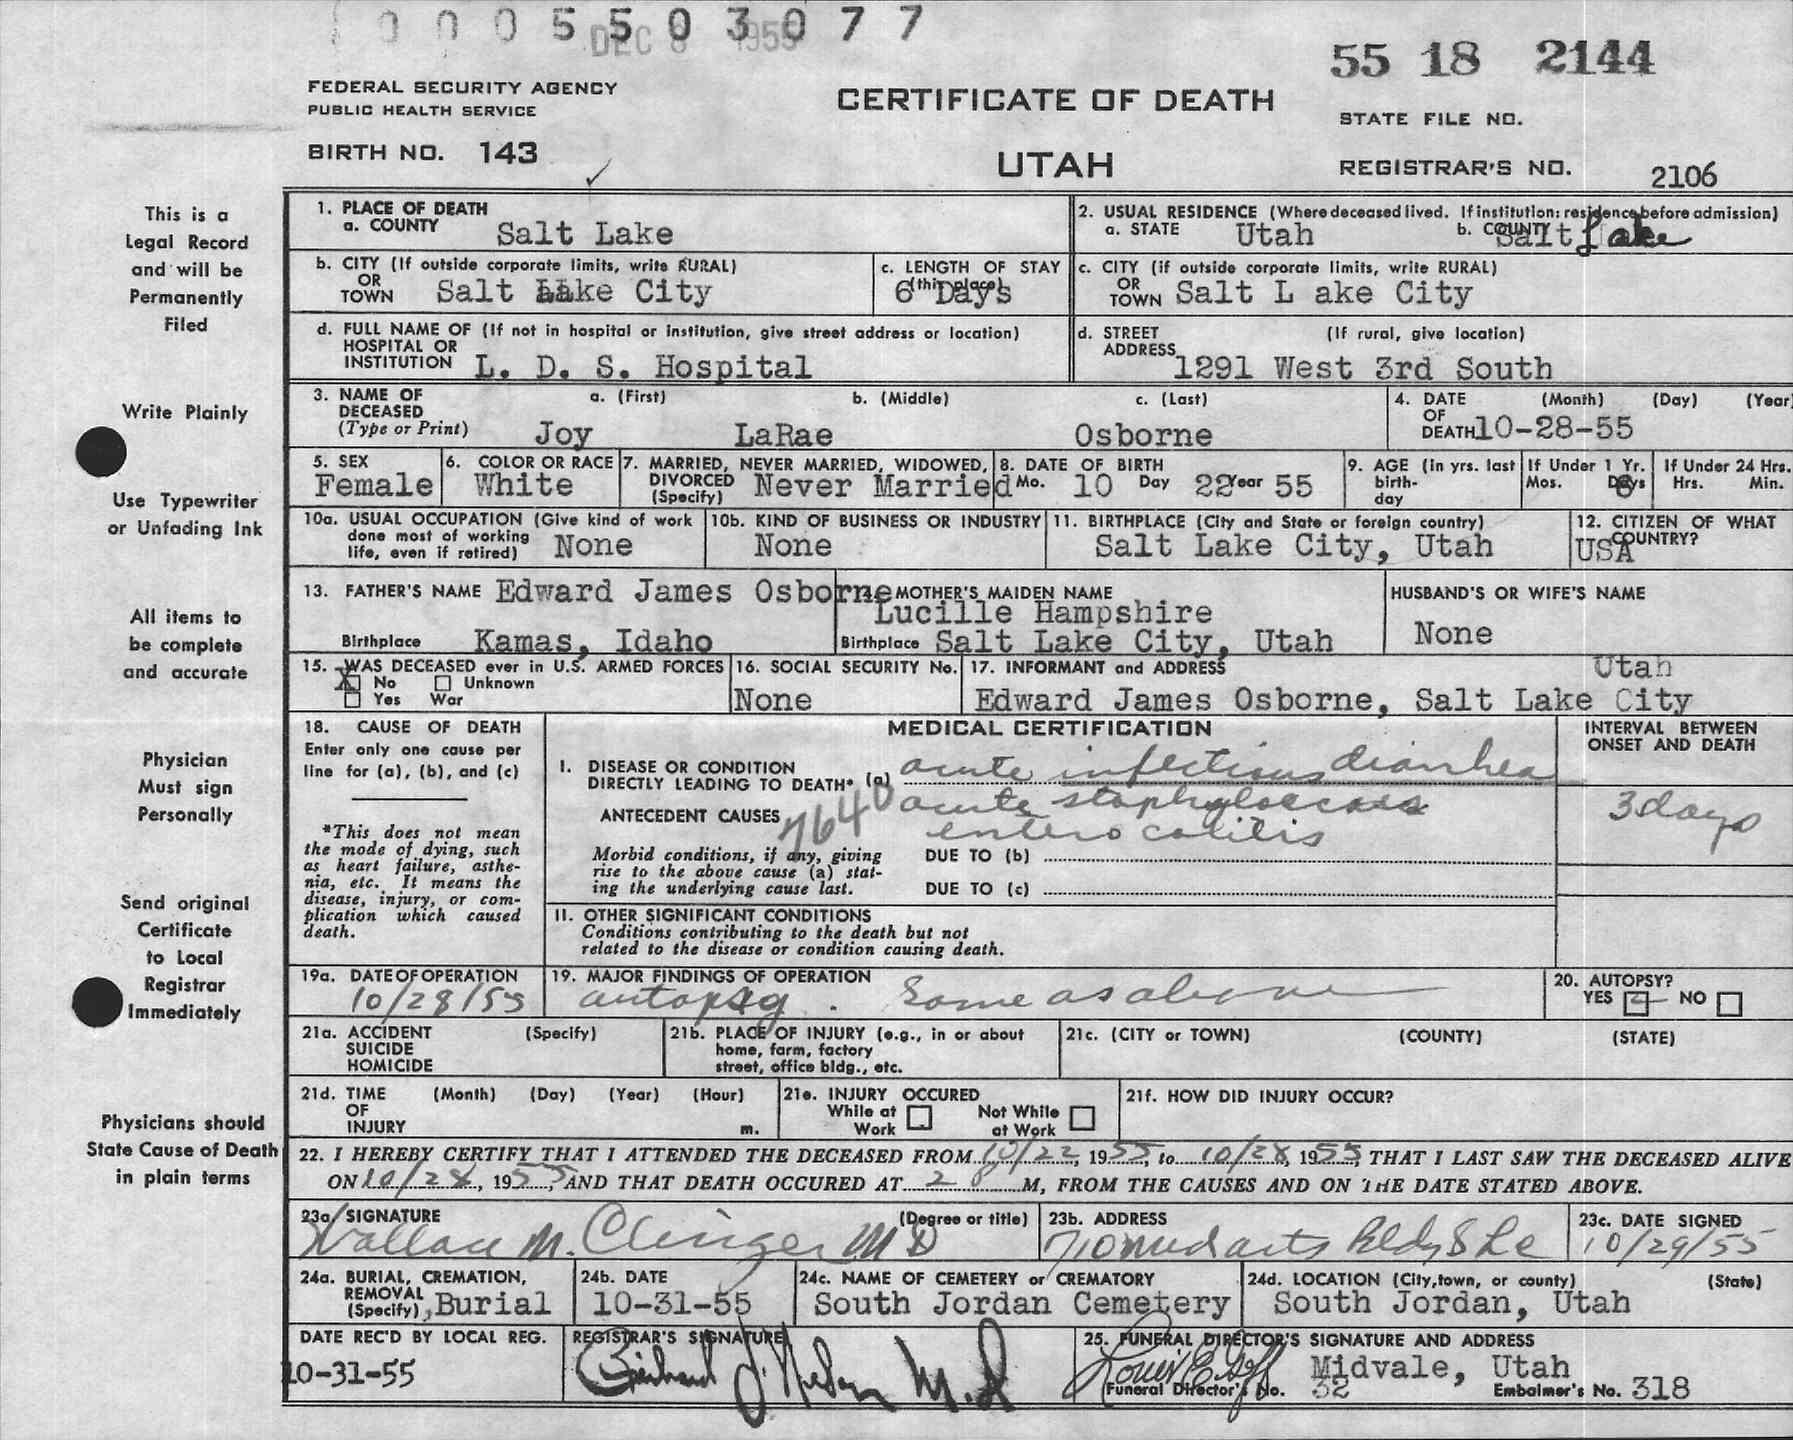 0 0 0 5 5 0 3 0 7 7
DEC 8 1955
55 18 2144
FEDERAL SECURITY AGENCY
PUBLIC HEALTH SERVICE
CERTIFICATE OF DEATH
STATE FILE NO.
BIRTH NO. 143
UTAH
REGISTRAR'S NO. 2106
This is a
Legal Record
and will be
Permanently
Filed
Write Plainly
Use Typewriter
or Unfading Ink
All items to
be complete
and accurate
Physician
Must sign
Personally
Send original
Certificate
to Local
Registrar
Immediately
Physicians should
State Cause of Death
in plain terms
1. PLACE OF DEATH
a. COUNTY Salt Lake
2. USUAL RESIDENCE (Where deceased lived. If institution: residence before admission)
a. STATE Utah b. COUNTY Salt Lake
b. CITY (If outside corporate limits, write RURAL)
OR
TOWN Salt Lake City
c. LENGTH OF STAY
(this place)
6 Days
c. CITY (if outside corporate limits, write RURAL)
OR
TOWN Salt L ake City
d. FULL NAME OF (If not in hospital or institution, give street address or location)
HOSPITAL OR
INSTITUTION L. D. S. Hospital
d. STREET (If rural, give location)
ADDRESS 1291 West 3rd South
3. NAME OF a. (First) b. (Middle) c. (Last)
DECEASED
(Type or Print) Joy LaRae Osborne
4. DATE (Month) (Day) (Year)
OF
DEATH 10-28-55
5. SEX
Female
6. COLOR OR RACE
White
7. MARRIED, NEVER MARRIED, WIDOWED,
DIVORCED
(Specify) Never Married
8. DATE OF BIRTH
Mo. 10 Day 22 Year 55
9. AGE (In yrs. last
birth-
day
If Under 1 Yr.
Mos. Days 6
If Under 24 Hrs.
Hrs. Min.
10a. USUAL OCCUPATION (Give kind of work
done most of working
life, even if retired) None
10b. KIND OF BUSINESS OR INDUSTRY
None
11. BIRTHPLACE (City and State or foreign country)
Salt Lake City, Utah
12. CITIZEN OF WHAT
COUNTRY?
USA
13. FATHER'S NAME Edward James Osborne
Birthplace Kamas, Idaho
MOTHER'S MAIDEN NAME
Lucille Hampshire
Birthplace Salt Lake City, Utah
HUSBAND'S OR WIFE'S NAME
None
15. WAS DECEASED ever in U.S. ARMED FORCES
X No Unknown
Yes War
16. SOCIAL SECURITY No.
None
17. INFORMANT and ADDRESS
Utah
Edward James Osborne, Salt Lake City
18. CAUSE OF DEATH
Enter only one cause per
line for (a), (b), and (c)
*This does not mean
the mode of dying, such
as heart failure, asthe-
nia, etc. It means the
disease, injury, or com-
plication which caused
death.
MEDICAL CERTIFICATION
INTERVAL BETWEEN
ONSET AND DEATH
I. DISEASE OR CONDITION
DIRECTLY LEADING TO DEATH* (a) acute infectious diarrhea
7640
ANTECEDENT CAUSES acute staphylococcus
entero colitis
3 days
Morbid conditions, if any, giving
rise to the above cause (a) stat-
ing the underlying cause last.
DUE TO (b)
DUE TO (c)
II. OTHER SIGNIFICANT CONDITIONS
Conditions contributing to the death but not
related to the disease or condition causing death.
19a. DATE OF OPERATION
10/28/55
19. MAJOR FINDINGS OF OPERATION
autopsy. Same as above
20. AUTOPSY?
YES NO
21a. ACCIDENT (Specify)
SUICIDE
HOMICIDE
21b. PLACE OF INJURY (e.g., in or about
home, farm, factory
street, office bldg., etc.
21c. (CITY or TOWN) (COUNTY) (STATE)
21d. TIME (Month) (Day) (Year) (Hour)
OF
INJURY m.
21e. INJURY OCCURED
While at Work
Not While at Work
21f. HOW DID INJURY OCCUR?
22. I HEREBY CERTIFY THAT I ATTENDED THE DECEASED FROM 10/22, 1955, to 10/28, 1955, THAT I LAST SAW THE DECEASED ALIVE
ON 10/28, 1955, AND THAT DEATH OCCURED AT 2 P M, FROM THE CAUSES AND ON THE DATE STATED ABOVE.
23a. SIGNATURE (Degree or title)
Wallace M. Clinger MD
23b. ADDRESS
710 Med arts Bldg S L C
23c. DATE SIGNED
10/29/55
24a. BURIAL, CREMATION,
REMOVAL
(Specify) Burial
24b. DATE
10-31-55
24c. NAME OF CEMETERY or CREMATORY
South Jordan Cemetery
24d. LOCATION (City, town, or county) (State)
South Jordan, Utah
DATE REC'D BY LOCAL REG.
10-31-55
REGISTRAR'S SIGNATURE
M.D.
25. FUNERAL DIRECTOR'S SIGNATURE AND ADDRESS
Midvale, Utah
Funeral Director's No. 32 Embalmer's No. 318